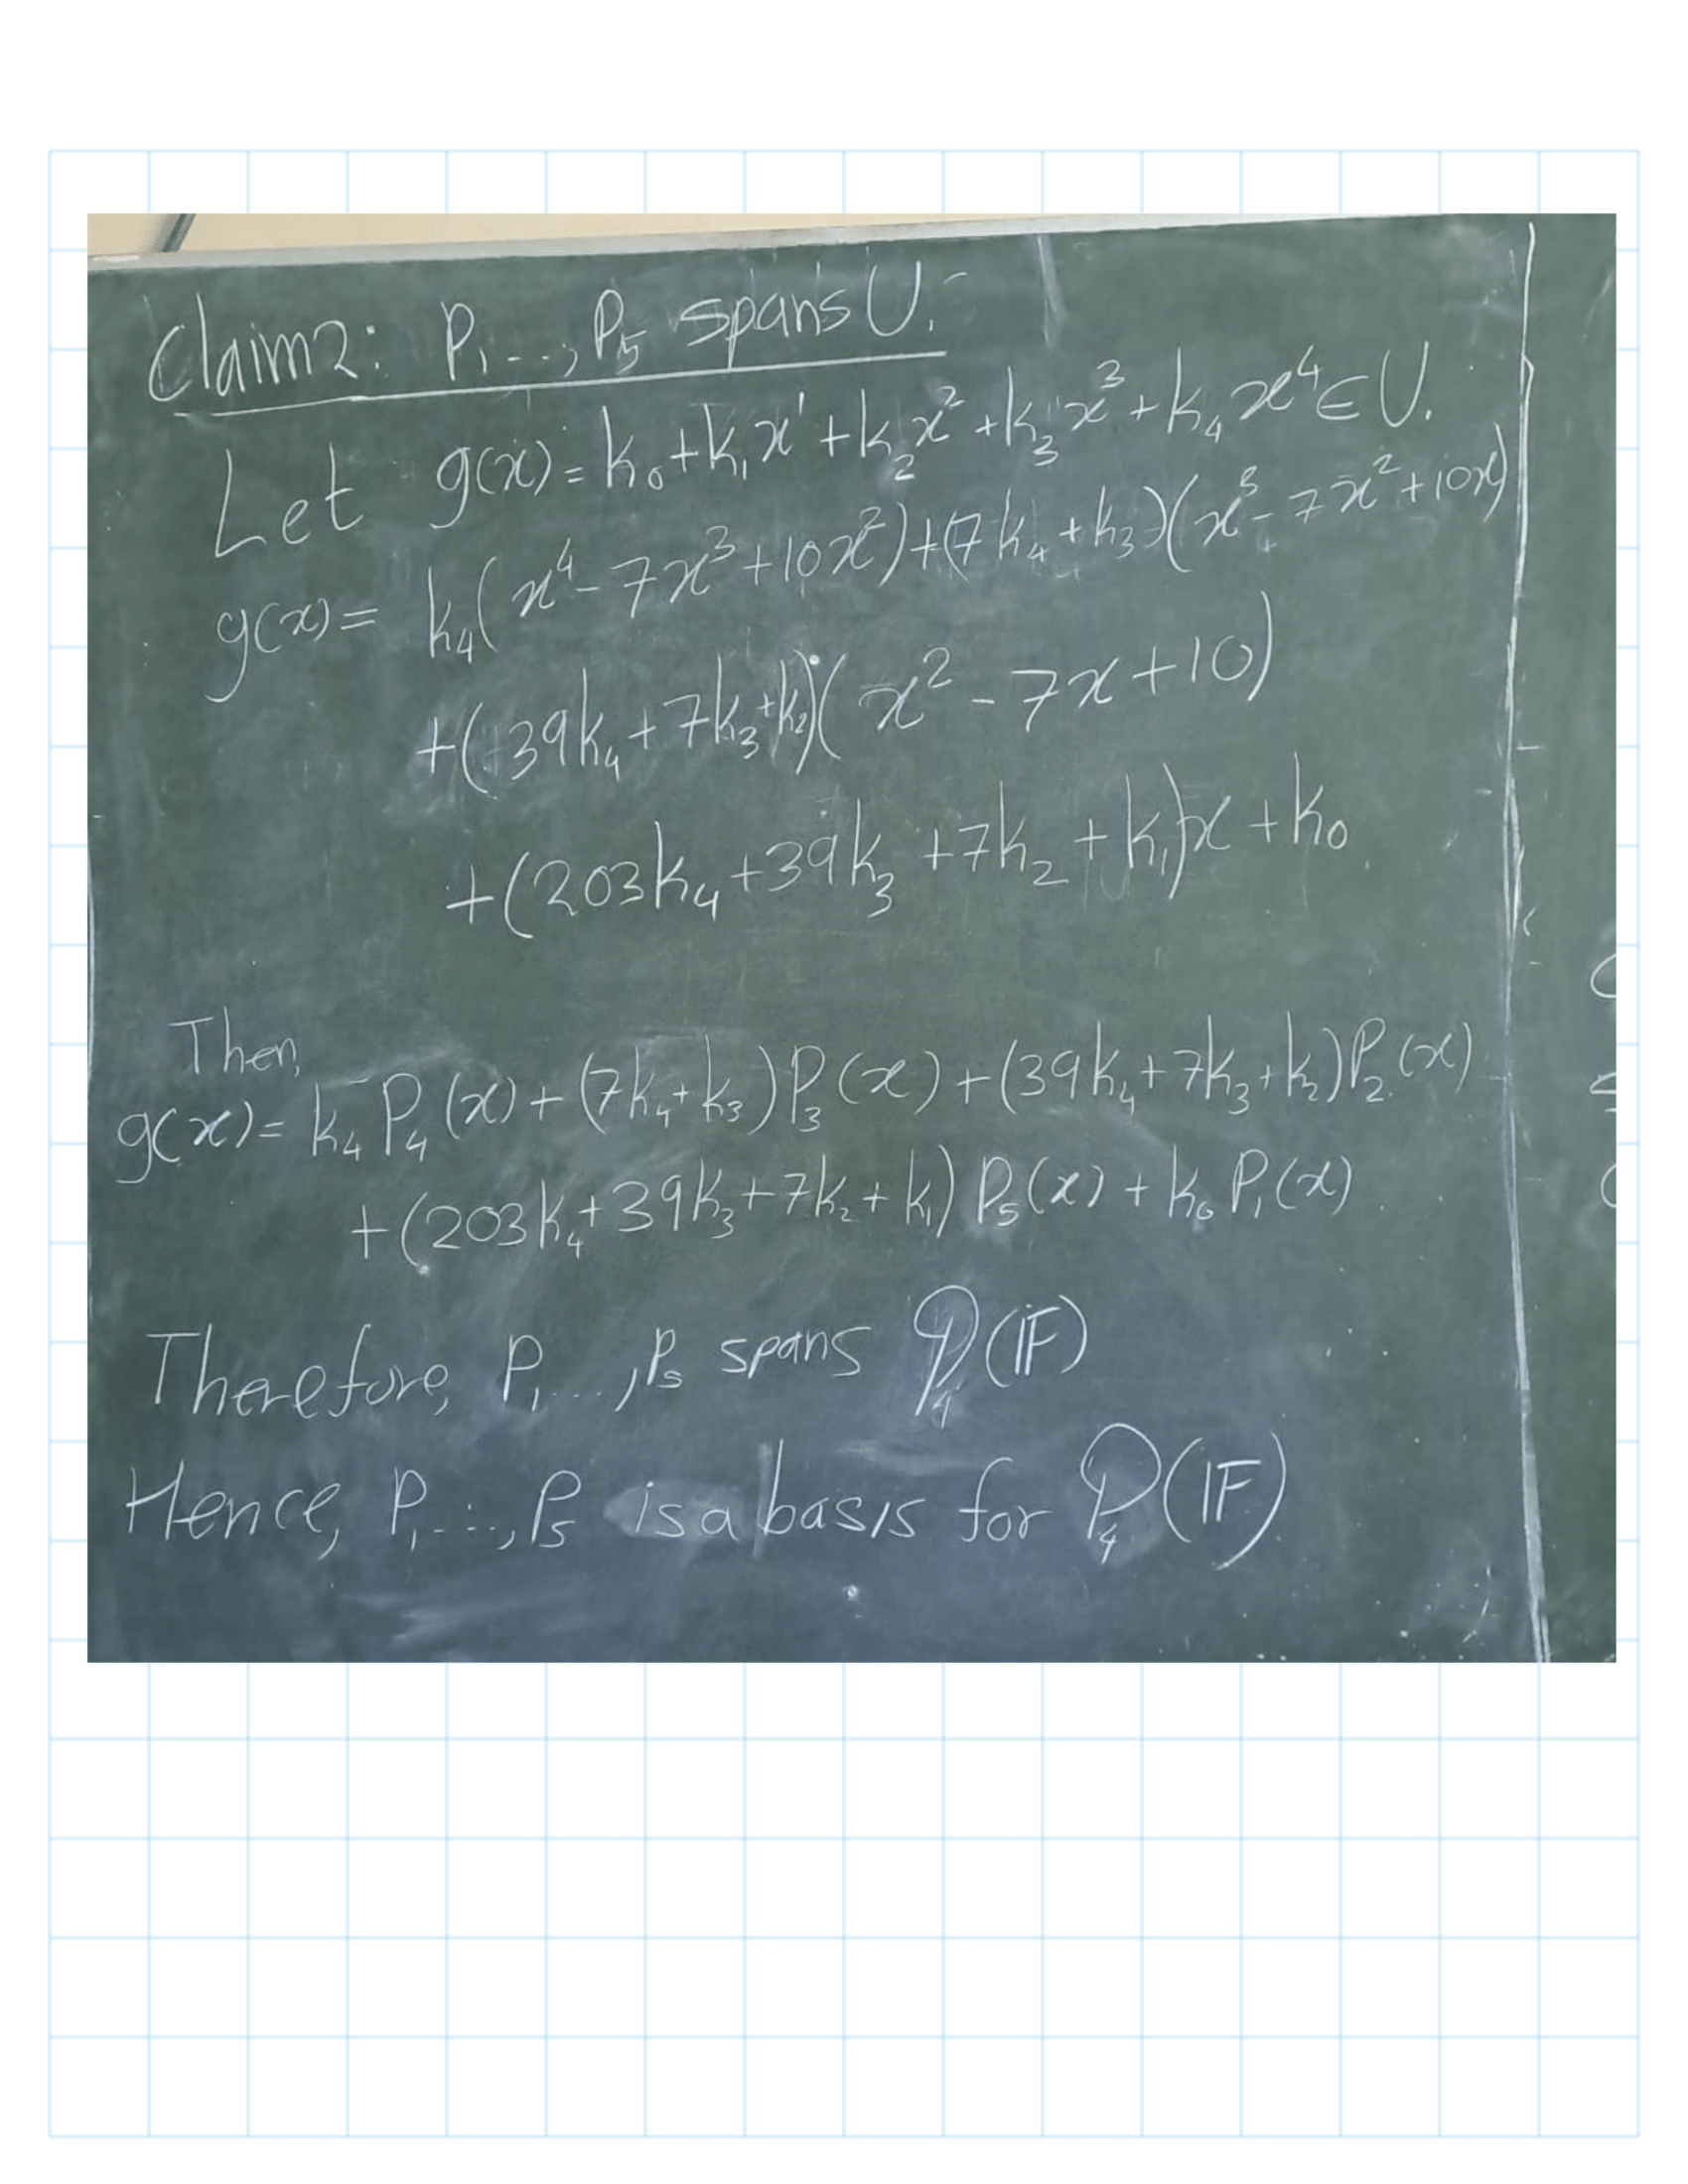 Claim2: P₁ ..., P₅ spans U.
Let g(x) = k₀+k₁x¹+k₂x²+k₃x³+k₄x⁴∈U.
g(x) = k₄(x⁴-7x³+10x²)+(7k₄+k₃)(x³-7x²+10x)
+(39k₄+7k₃+k₂)(x²-7x+10)
+(203k₄+39k₃+7k₂+k₁)x+k₀
Then,
g(x)= k₄P₄(x)+(7k₄+k₃)P₃(x)+(39k₄+7k₃+k₂)P₂(x)
+(203k₄+39k₃+7k₂+k₁)P₅(x)+k₀P₁(x)
Therefore, P₁...,P₅ spans 𝒫₄(𝔽)
Hence, P₁...,P₅ is a basis for 𝒫₄(𝔽)